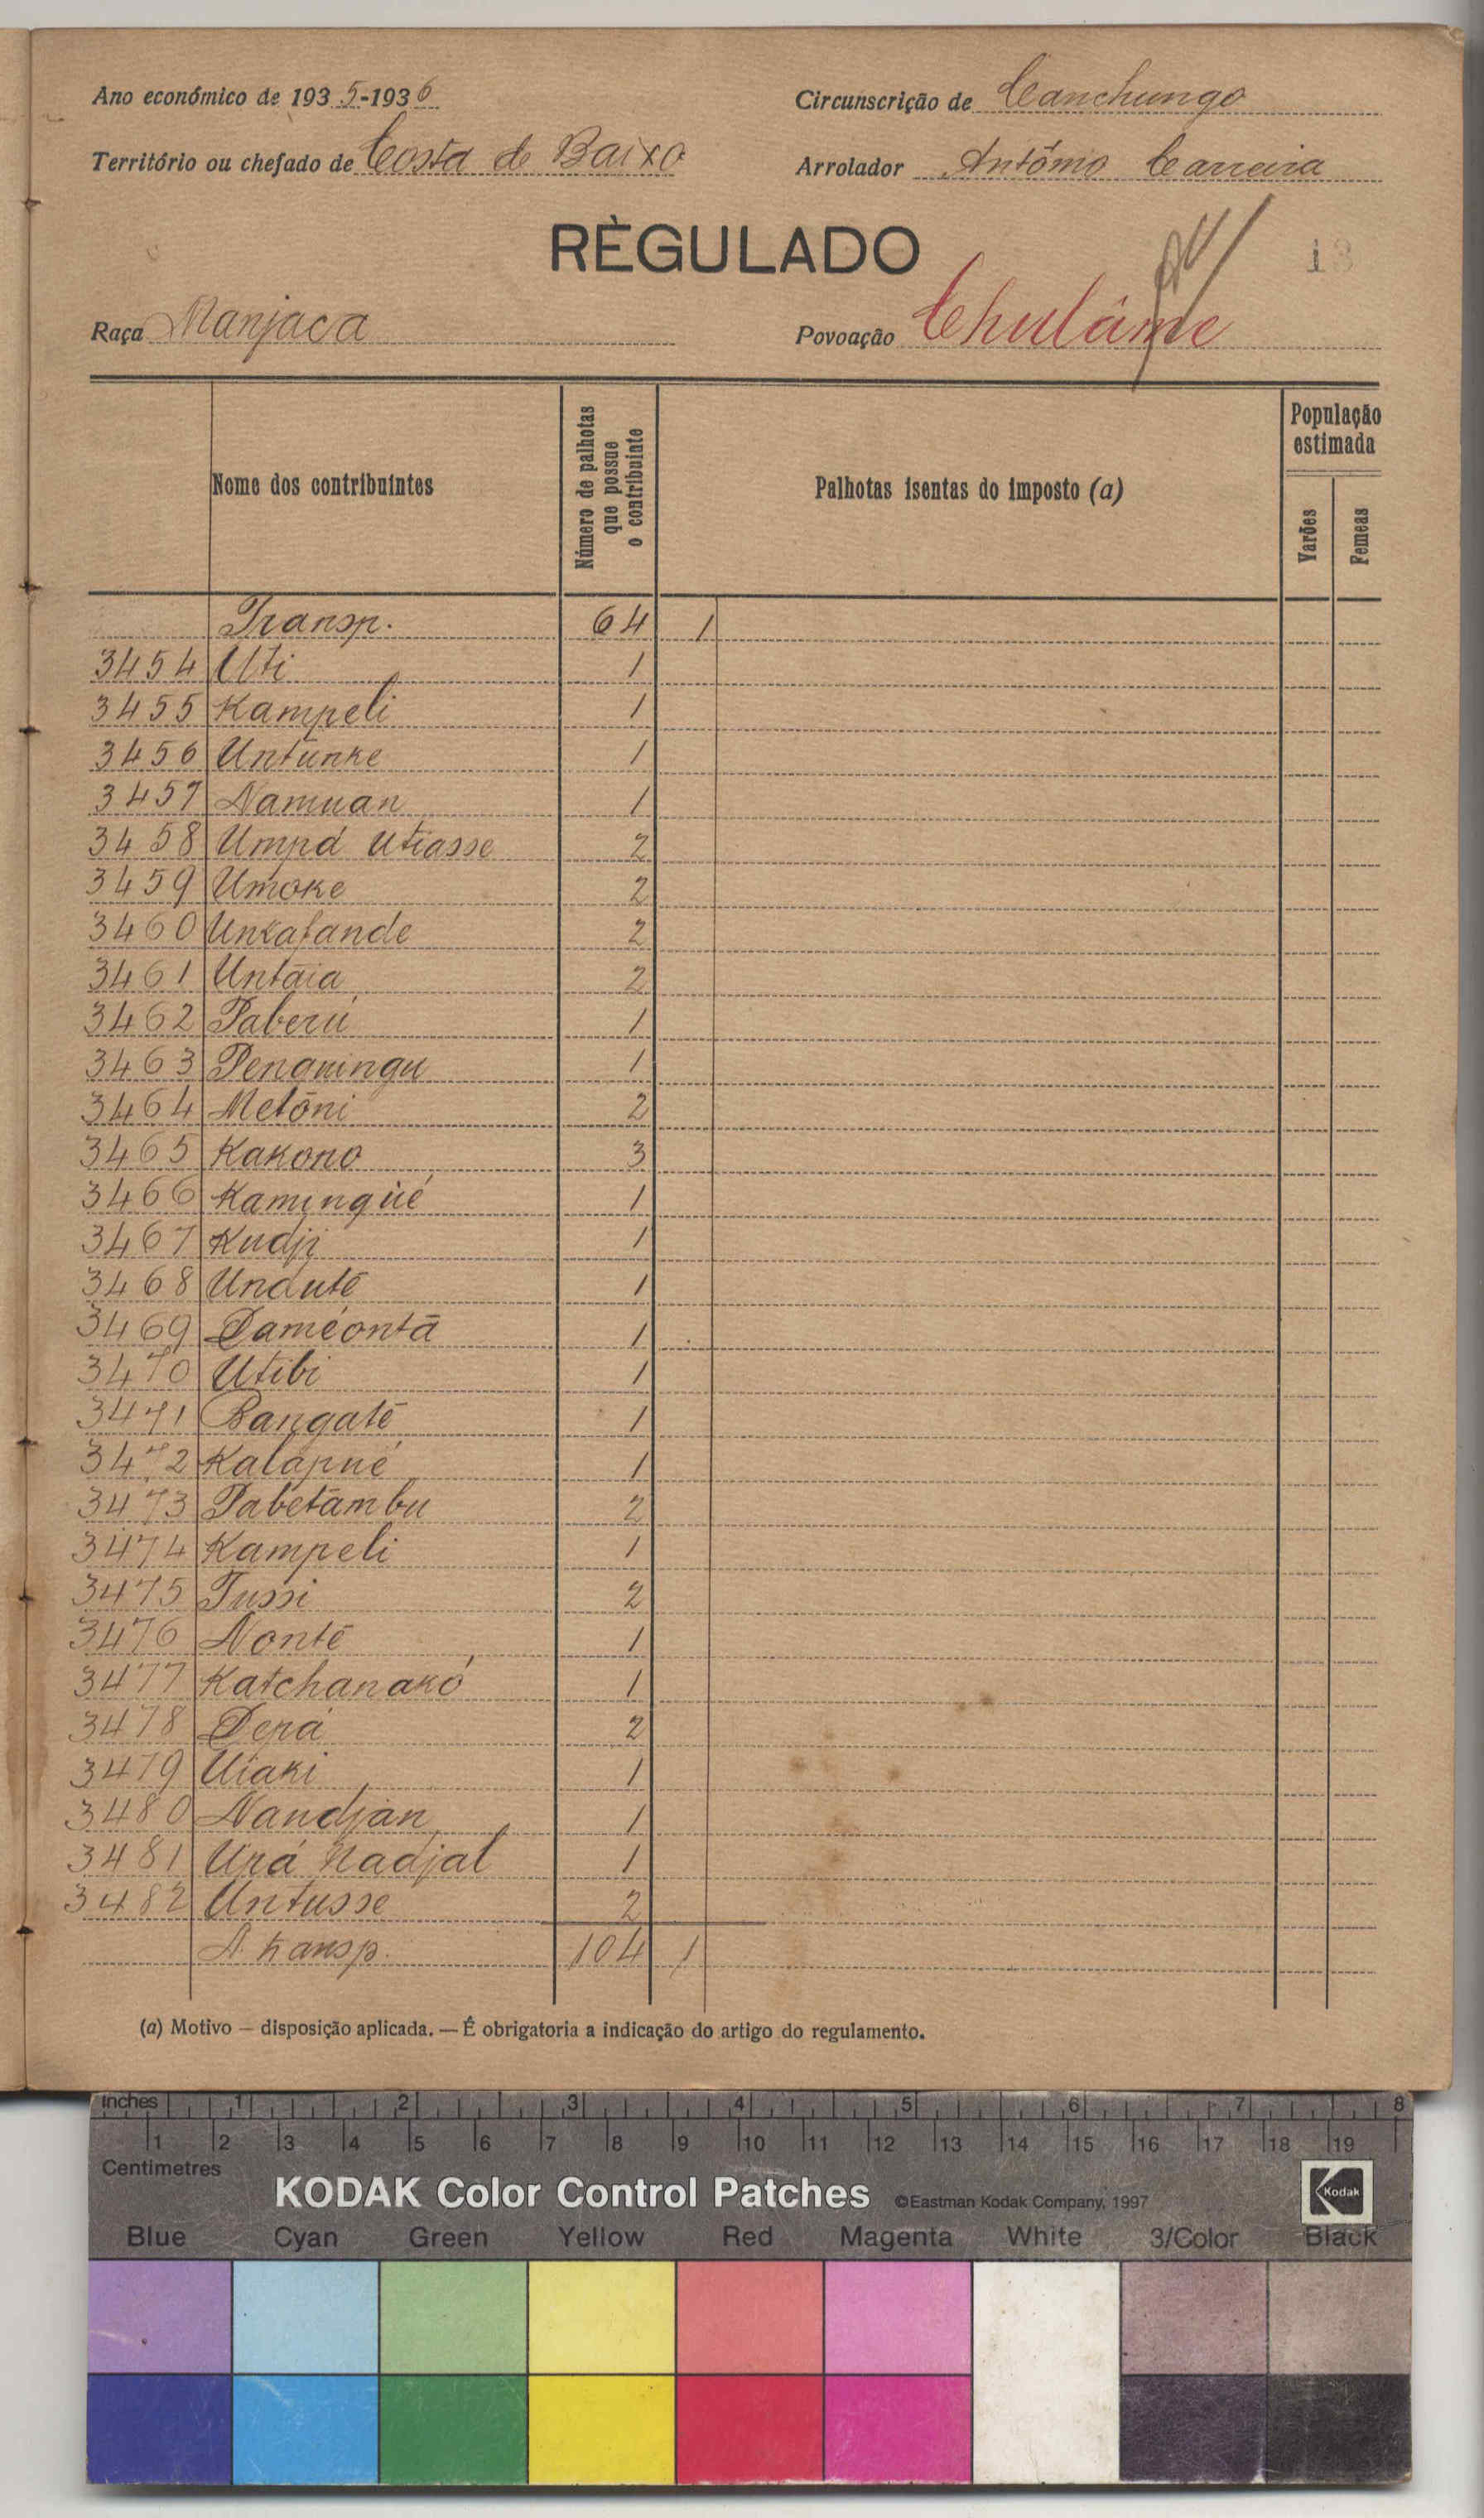 Ano económico de 1935-1936
Circunscrição de Canchungo
Território ou chefado de Costa de Baixo
Arrolador António Carreira
RÈGULADO
13
Raça Manjaca
Povoação Chulâme
Nome dos contribuintes
Número de palhotas que possue o contribuinte
Palhotas isentas do imposto (a)
População estimada
Varões
Femeas
Transp. 64 1
3454 Uti 1
3455 Kampeli 1
3456 Untunke 1
3457 Namuan 1
3458 Umpá Utiasse 2
3459 Umoke 2
3460 Unkafande 2
3461 Untāia 2
3462 Paberú 1
3463 Penguingu 1
3464 Metōni 2
3465 Kakono 3
3466 Kamingüé 1
3467 Kudji 1
3468 Undutē 1
3469 Daméontā 1
3470 Utibi 1
3471 Bangatē 1
3472 Kalapué 1
3473 Pabetāmbu 2
3474 Kampeli 1
3475 Tussi 2
3476 Nontē 1
3477 Katchanakó 1
3478 Depá 2
3479 Uiaki 1
3480 Nandjan 1
3481 Upá Nadjal 1
3482 Untusse 2
A transp. 104 1
(a) Motivo — disposição aplicada. — É obrigatoria a indicação do artigo do regulamento.
Inches 1 2 3 4 5 6 7 8
1 2 3 4 5 6 7 8 9 10 11 12 13 14 15 16 17 18 19
Centimetres
KODAK Color Control Patches ©Eastman Kodak Company, 1997 Kodak
Blue Cyan Green Yellow Red Magenta White 3/Color Black